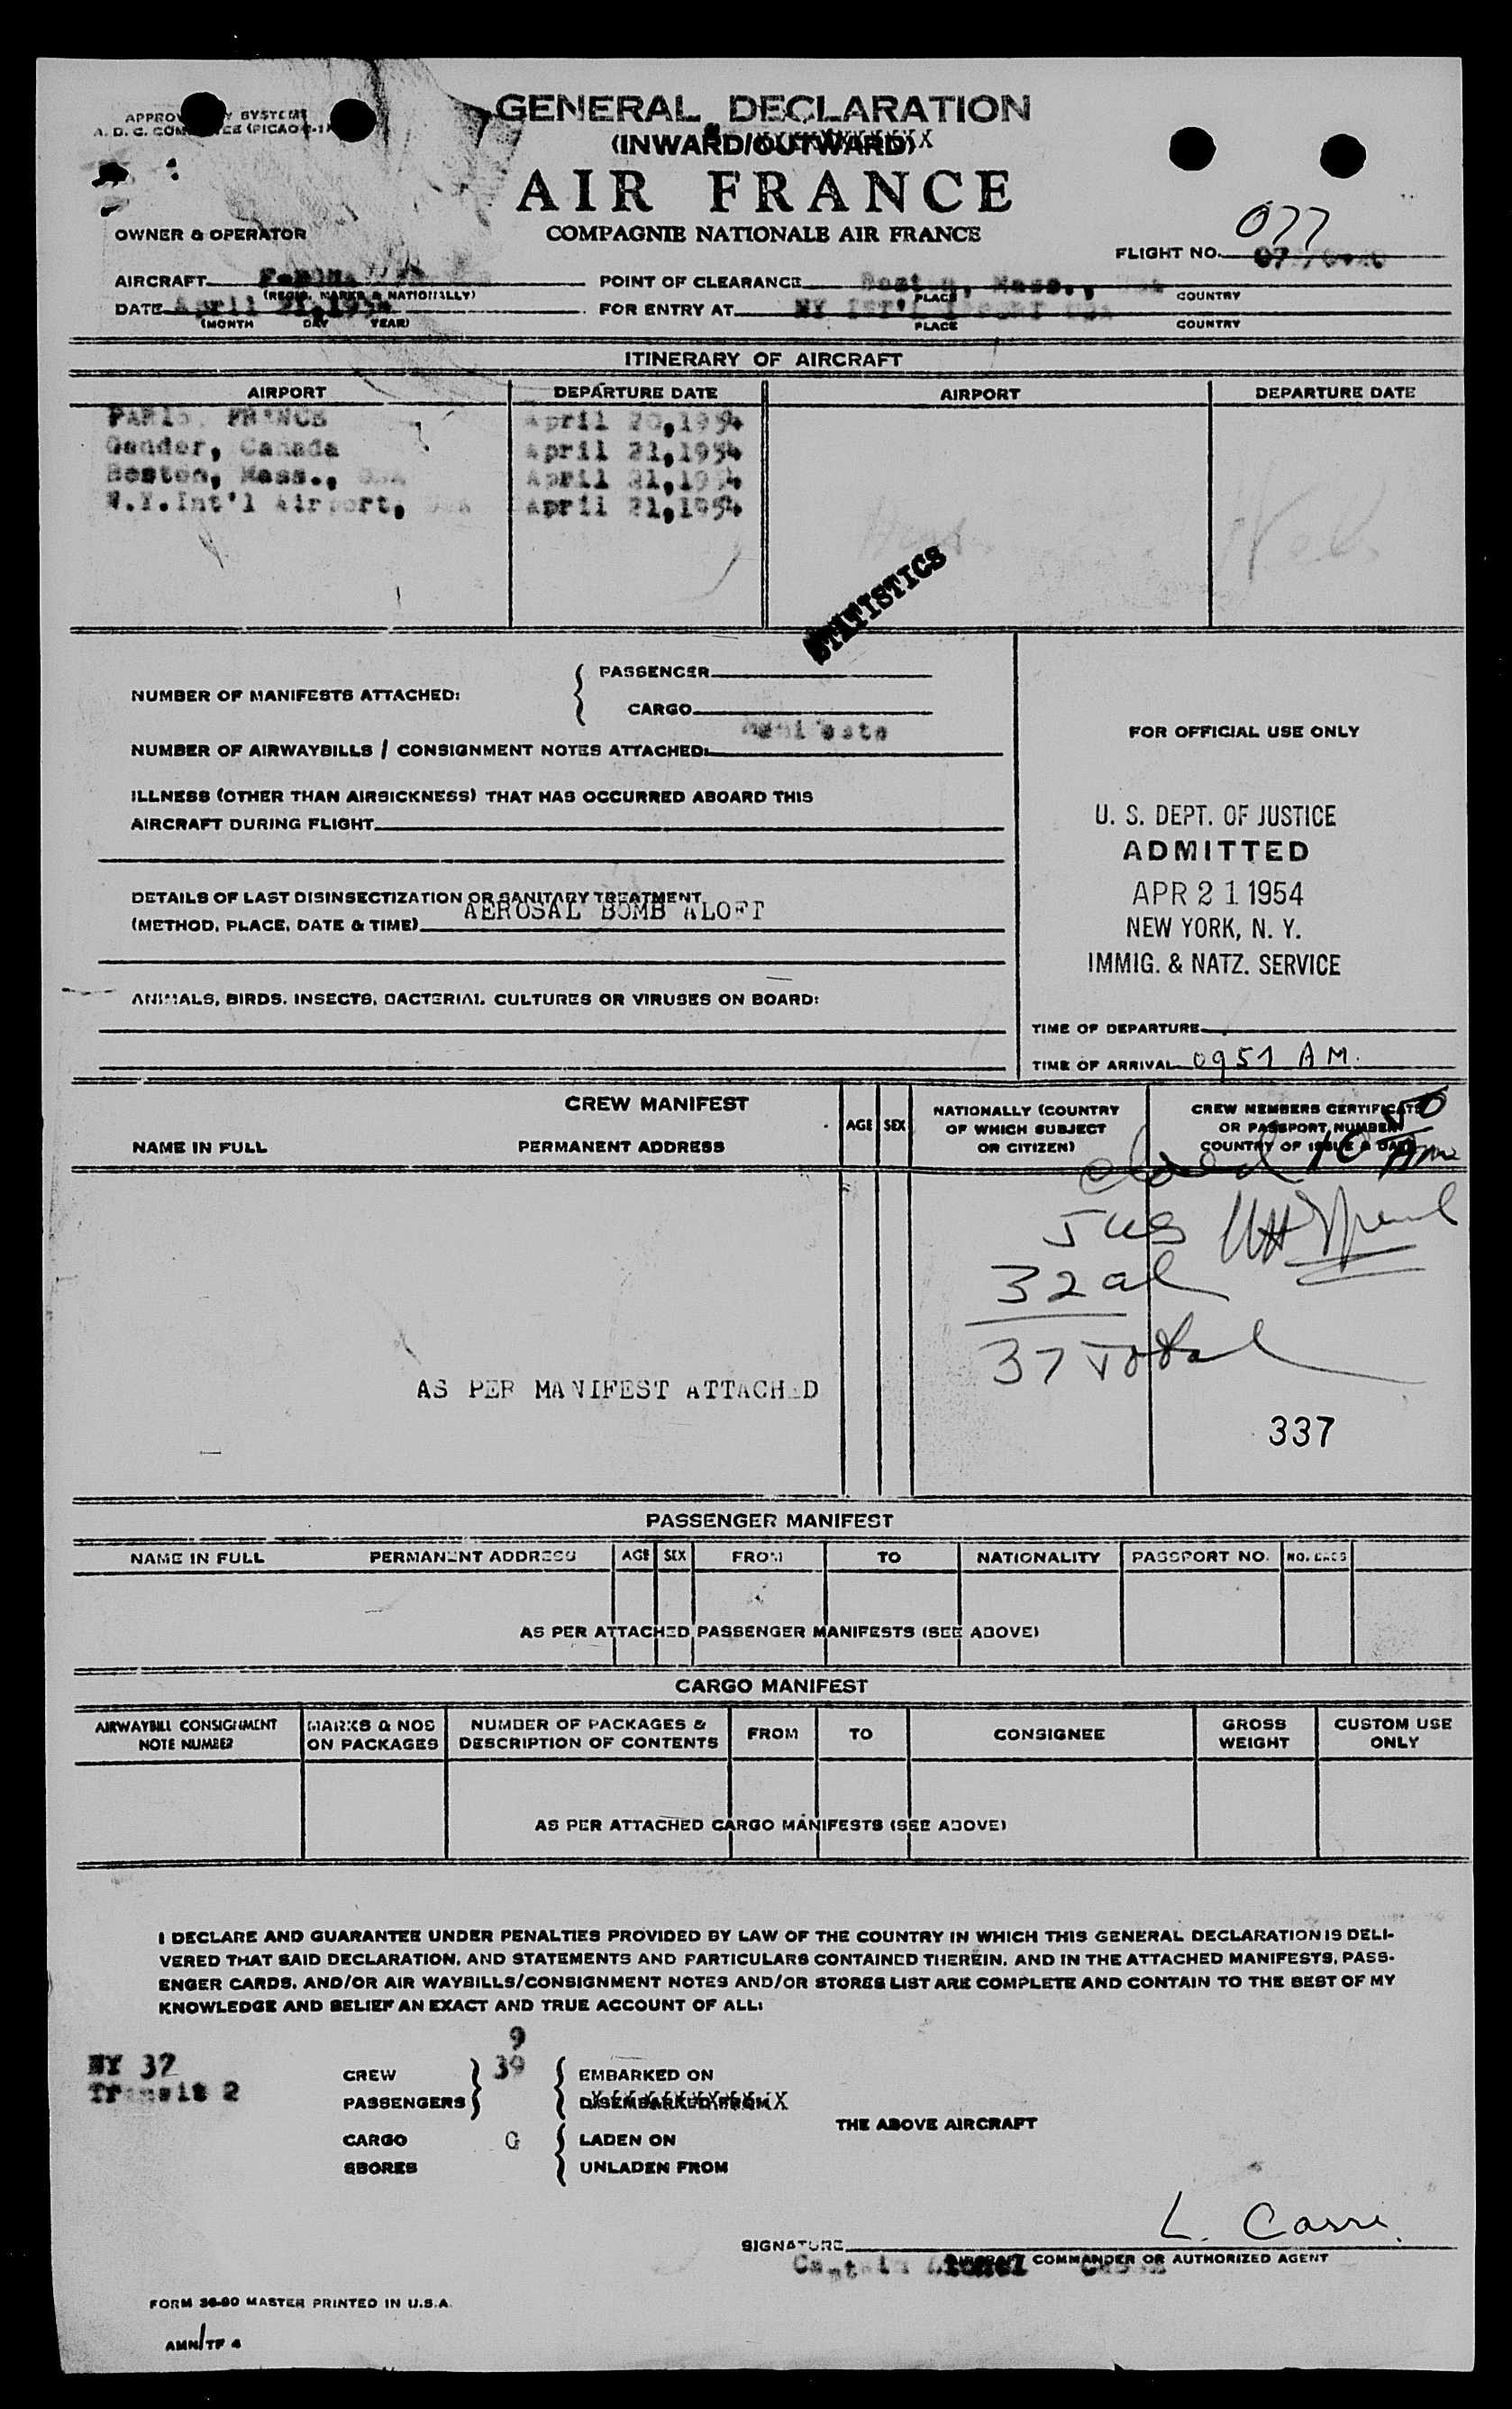 GENERAL DECLARATION
(INWARD/OUTWARD)
AIR FRANCE
COMPAGNIE NATIONALE AIR FRANCE
OWNER & OPERATOR
077
FLIGHT NO.
AIRCRAFT
(REGIS. MARKS & NATIONALLY)
POINT OF CLEARANCE Boston, Mass.,
PLACE COUNTRY
DATE April 21,1954
(MONTH DAY YEAR)
FOR ENTRY AT NY
PLACE COUNTRY
ITINERARY OF AIRCRAFT
AIRPORT DEPARTURE DATE AIRPORT DEPARTURE DATE
PARIS, FRANCE April 20,1954
Gander, Canada April 21,1954
Boston, Mass., USA April 21,1954
N.Y.Int'l Airport, USA April 21,1954
STATISTICS
NUMBER OF MANIFESTS ATTACHED:
PASSENGER
CARGO
NUMBER OF AIRWAYBILLS / CONSIGNMENT NOTES ATTACHED:
ILLNESS (OTHER THAN AIRSICKNESS) THAT HAS OCCURRED ABOARD THIS
AIRCRAFT DURING FLIGHT
DETAILS OF LAST DISINSECTIZATION OR SANITARY TREATMENT
(METHOD, PLACE, DATE & TIME) AEROSAL BOMB ALOFT
ANIMALS, BIRDS, INSECTS, BACTERIAL CULTURES OR VIRUSES ON BOARD:
FOR OFFICIAL USE ONLY
U. S. DEPT. OF JUSTICE
ADMITTED
APR 21 1954
NEW YORK, N. Y.
IMMIG. & NATZ. SERVICE
TIME OF DEPARTURE
TIME OF ARRIVAL 0951 AM.
CREW MANIFEST
NAME IN FULL PERMANENT ADDRESS AGE SEX
NATIONALLY (COUNTRY
OF WHICH SUBJECT
OR CITIZEN)
CREW MEMBERS CERTIFICATE
OR PASSPORT NUMBER
COUNTRY OF ISSUE & DATE
closed 10 50 Am
5 us
32 al
37 Total
AS PER MANIFEST ATTACHED
337
PASSENGER MANIFEST
NAME IN FULL PERMANENT ADDRESS AGE SEX FROM TO NATIONALITY PASSPORT NO. NO. BAGS
AS PER ATTACHED PASSENGER MANIFESTS (SEE ABOVE)
CARGO MANIFEST
AIRWAYBILL CONSIGNMENT
NOTE NUMBER
MARKS & NOS
ON PACKAGES
NUMBER OF PACKAGES &
DESCRIPTION OF CONTENTS
FROM TO CONSIGNEE
GROSS
WEIGHT
CUSTOM USE
ONLY
AS PER ATTACHED CARGO MANIFESTS (SEE ABOVE)
I DECLARE AND GUARANTEE UNDER PENALTIES PROVIDED BY LAW OF THE COUNTRY IN WHICH THIS GENERAL DECLARATION IS DELI-
VERED THAT SAID DECLARATION, AND STATEMENTS AND PARTICULARS CONTAINED THEREIN, AND IN THE ATTACHED MANIFESTS, PASS-
ENGER CARDS, AND/OR AIR WAYBILLS/CONSIGNMENT NOTES AND/OR STORES LIST ARE COMPLETE AND CONTAIN TO THE BEST OF MY
KNOWLEDGE AND BELIEF AN EXACT AND TRUE ACCOUNT OF ALL:
NY 37
Transit 2
CREW 9
PASSENGERS 39
EMBARKED ON
DISEMBARKED FROM
CARGO
SBORES
LADEN ON
UNLADEN FROM
THE ABOVE AIRCRAFT
L. Carri
SIGNATURE
AIRCRAFT COMMANDER OR AUTHORIZED AGENT
Captain Lionel
FORM 36-90 MASTER PRINTED IN U.S.A.
AMN/TF 4